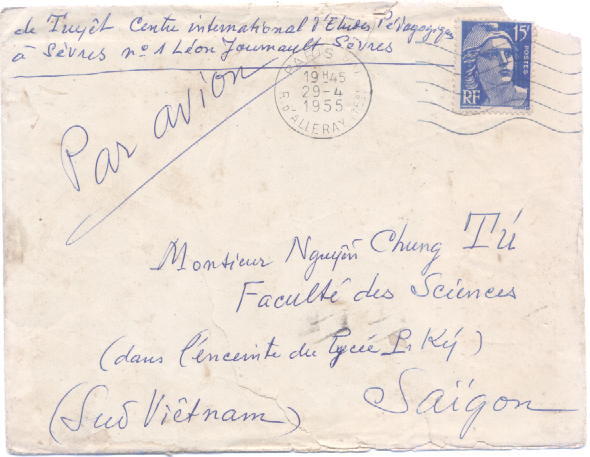 de Tuyêt Centre international d'Etudes Pédagogiques
à Sèvres nº 1 Léon Journault Sèvres
PARIS
19H45
29-4
1955
R. D'ALLERAY
15F
POSTES
RF
Par avion
Monsieur Nguyễn Chung Tú
Faculté des Sciences
(dans l'enceinte du lycée P. Ký)
Saïgon
(Sud Viêtnam)